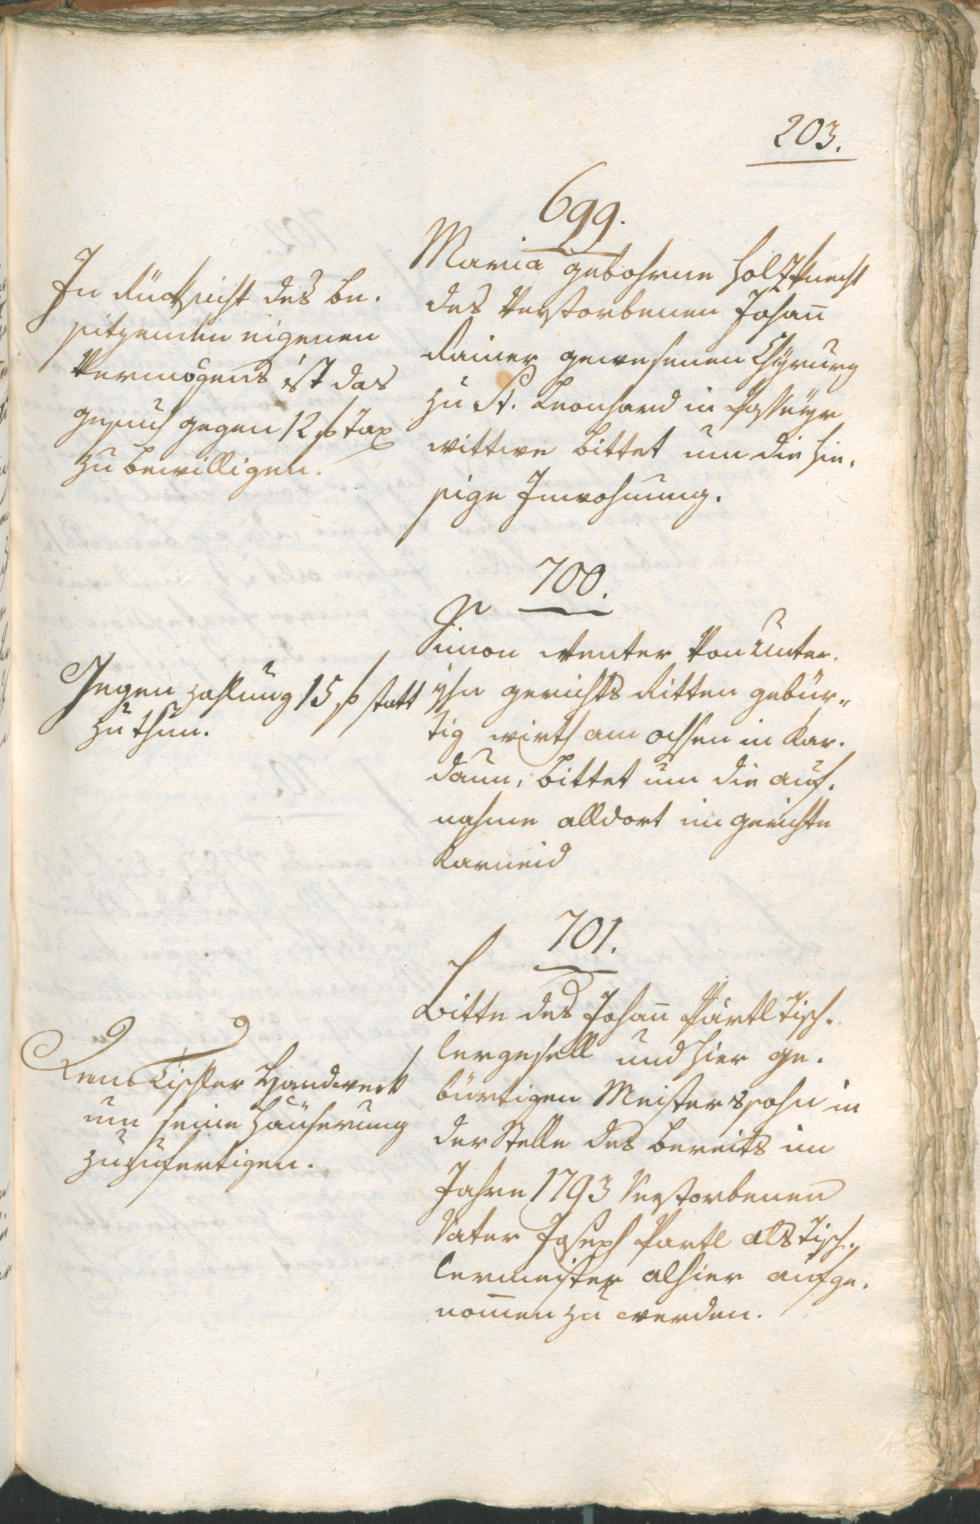 203.
699.
Maria gebohrne Holzknecht
des Verstorbenen Johan̄
Rainer gewesenen Chyrurg
zu St. Leonhard in Passeyr
wittwe bittet um die hie,
sige Inwohnung.
In Rücksicht des be,
sitzenden eigenen
Vermögens ist das
gesuch gegen 12 f Tax
zu bewilligen.
700.
Simon Venter Von Unter,
gerichts Ritten gebür„
tig wirth am ochsen in Kar,
daun, bittet um die auf,
nahme alldort im gerichte
Karneid
Gegen zahlung 15 f statt
zu thun.
701.
Bitte des Johan̄ Pärtl Tisch,
lergesell und hier ge,
bürtigen Meisterssohn in
der Stelle des bereits im
Jahre 1793 Verstorbenen
Vater Joseph Partl als Tisch,
lermeister alhier aufge,
nom̄en zu werden.
Dem Tischler Handwerk
um seine Häuserung
zuzufertigen.